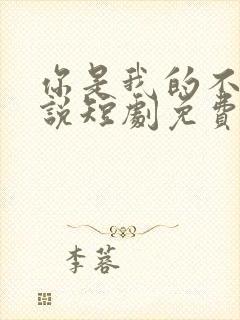 你是我的不
說短劇免費
李蓉